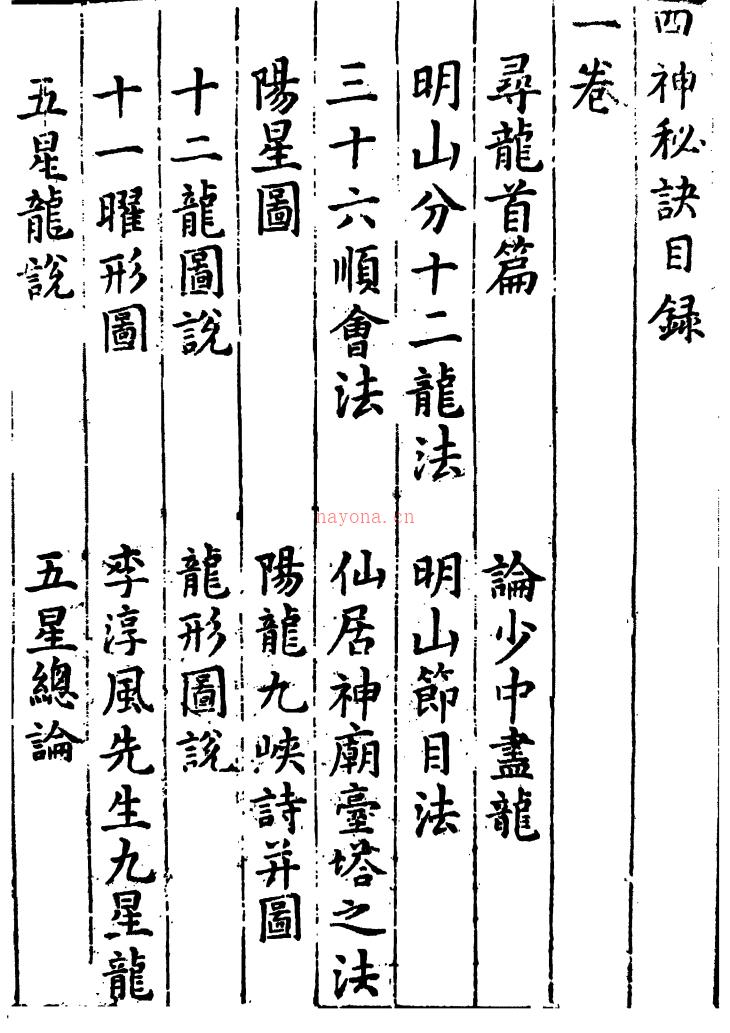 四神秘訣目録
一卷
尋龍首篇 論少中盡龍
明山分十二龍法 明山節目法
三十六順會法 仙居神廟臺塔之法
陽星圖 陽龍九峽詩并圖
十二龍圖說 龍形圖說
十一曜形圖 李淳風先生九星龍
五星龍說 五星總論
hayona.cn